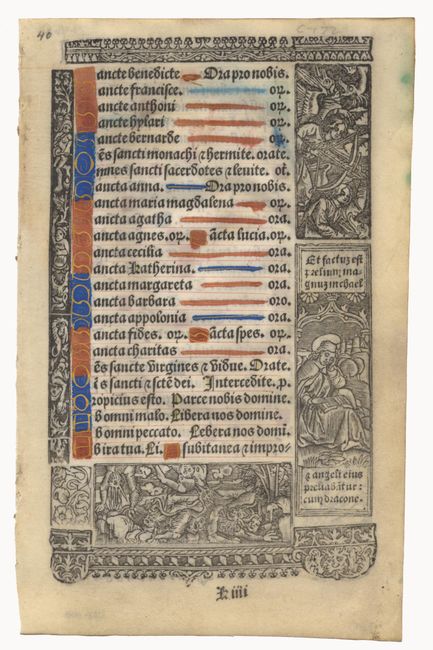 40
ancte benedicte Ora pro nobis.
ancte francisce. oꝝ.
ancte anthoni oꝝ.
ancte hylari oꝝ.
ancte bernarde oꝝ.
ẽs sancti monachi ⁊ hermite. orate.
mnes sancti sacerdotes ⁊ leuite. oť.
ancta anna. Ora pro nobis.
ancta maria magdalena oꝝ.
ancta agatha ora.
ancta agnes. oꝝ. Sãcta lucia. oꝝ.
ancta cecilia ora.
ancta katherina. ora.
ancta margareta ora.
ancta barbara oro.
ancta appolonia ora.
ancta fides. oꝝ. Sãcta spes. oꝝ.
ancta charitas ora.
ẽs sancte virgines ⁊ vidue. Orate.
ẽs sancti ⁊ sctẽ dei. Intercedite. p.
ropicius esto. Parce nobis domine.
b omni malo. Libera nos domine.
b omni peccato. Lebera nos domĩ.
b ira tua. Li. A subitanea ⁊ impro-
Et factuz est
prelium ma
gnuz michael
⁊ angeli eius
preliabãtur
cum dracone.
k iiii